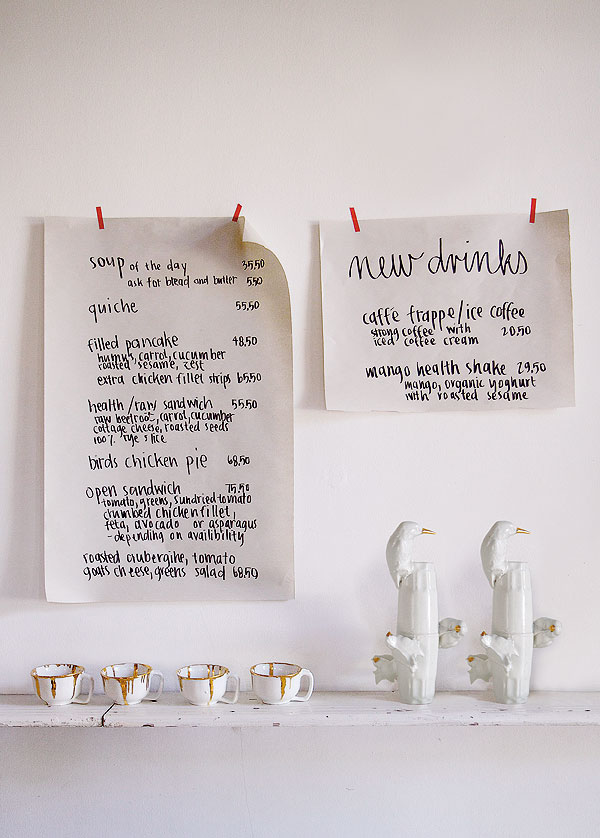 soup of the day 35,50
ask for bread and butter 5,50
quiche 55,50
filled pancake 48,50
humus, carrot, cucumber
roasted sesame, zest
extra chicken fillet strips 65,50
health/raw sandwich 55,50
raw beetroot, carrot, cucumber
cottage cheese, roasted seeds
100% rye slice
birds chicken pie 68,50
open sandwich 75,50
tomato, greens, sundried tomato
crumbed chicken fillet,
feta, avocado or asparagus
-depending on availibility
roasted aubergine, tomato
goats cheese, greens salad 68,50
new drinks
caffe frappe/ice coffee
strong coffee with 20,50
iced coffee cream
mango health shake 29,50
mango, organic yoghurt
with roasted sesame